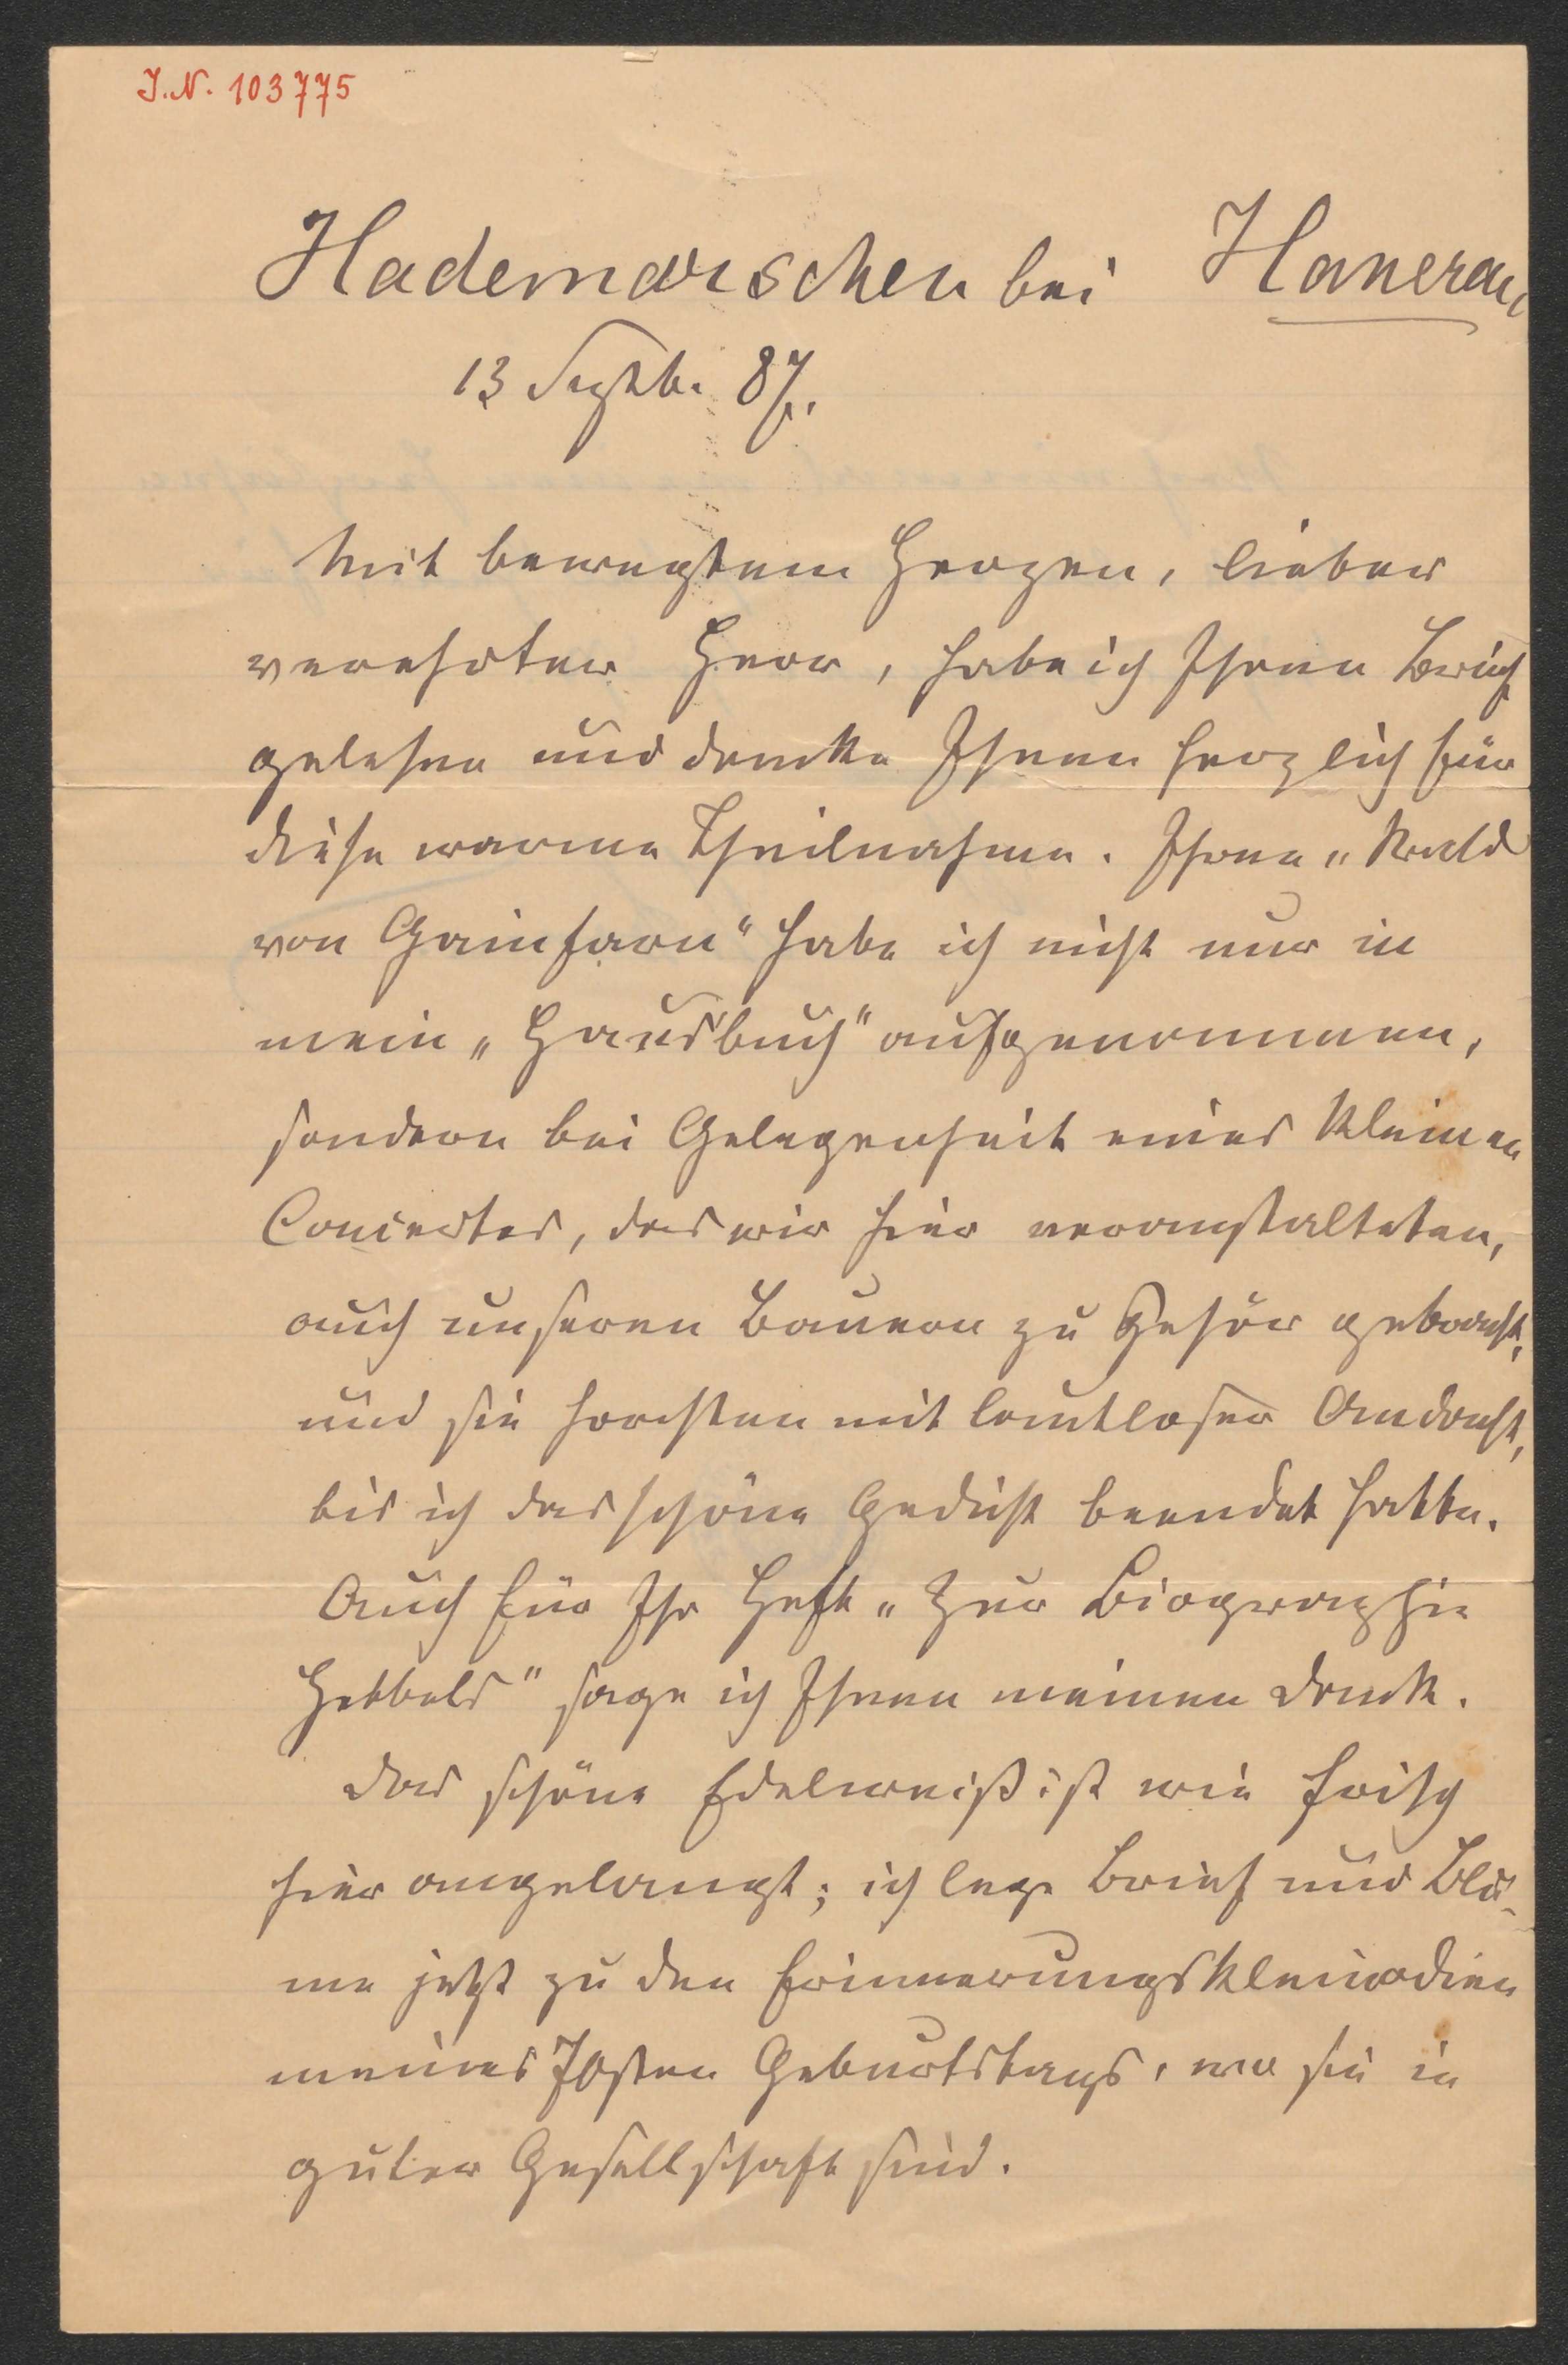 J.N. 103775
Hademarschen bei Hanerau
13 Septb. 87.
Mit bewegtem Herzen, lieber
verehrter Herr, habe ich Ihren Brief
gelesen und danke Ihnen herzlich für
diese warme Theilnahme. Ihren „Wald
von Gainfarn" habe ich nicht nur in
mein „Hausbuch" aufgenommen,
sondern bei Gelegenheit eines kleinen
Concertes, das wir hier veranstalteten,
auch unseren Bauern zu Gehör gebracht,
und sie horchten mit lautloser Andacht,
bis ich das schöne Gedicht beendet hatte.
Auch für Ihr Heft „Zur Biographie
Hebbels" sage ich Ihnen meinen Dank.
Das schöne Edelweiß ist wie frisch
hier angelangt; ich lege Brief und Blu-
me jetzt zu den Erinnerungskleinodien
meines 70sten Geburtstags, wo sie in
guter Gesellschaft sind.